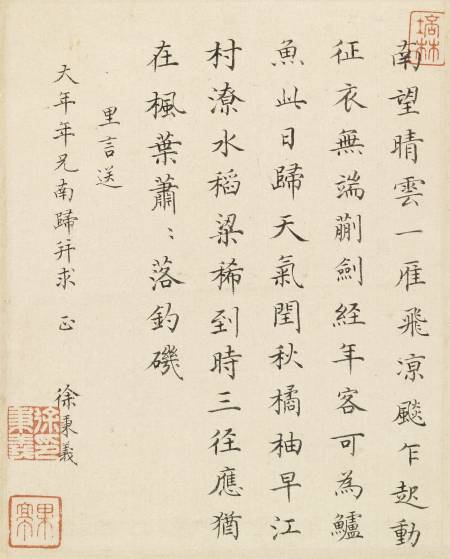 南望晴雲一雁飛涼飈乍起動
征衣無端蒯劍経年客可為鱸
魚此日歸天氣閏秋橘柚早江
村潦水稻粱稀到時三径應猶
在楓葉蕭〻落釣磯
里言送
大年年兄南歸并求 正
徐秉義
徐印秉義
果亭